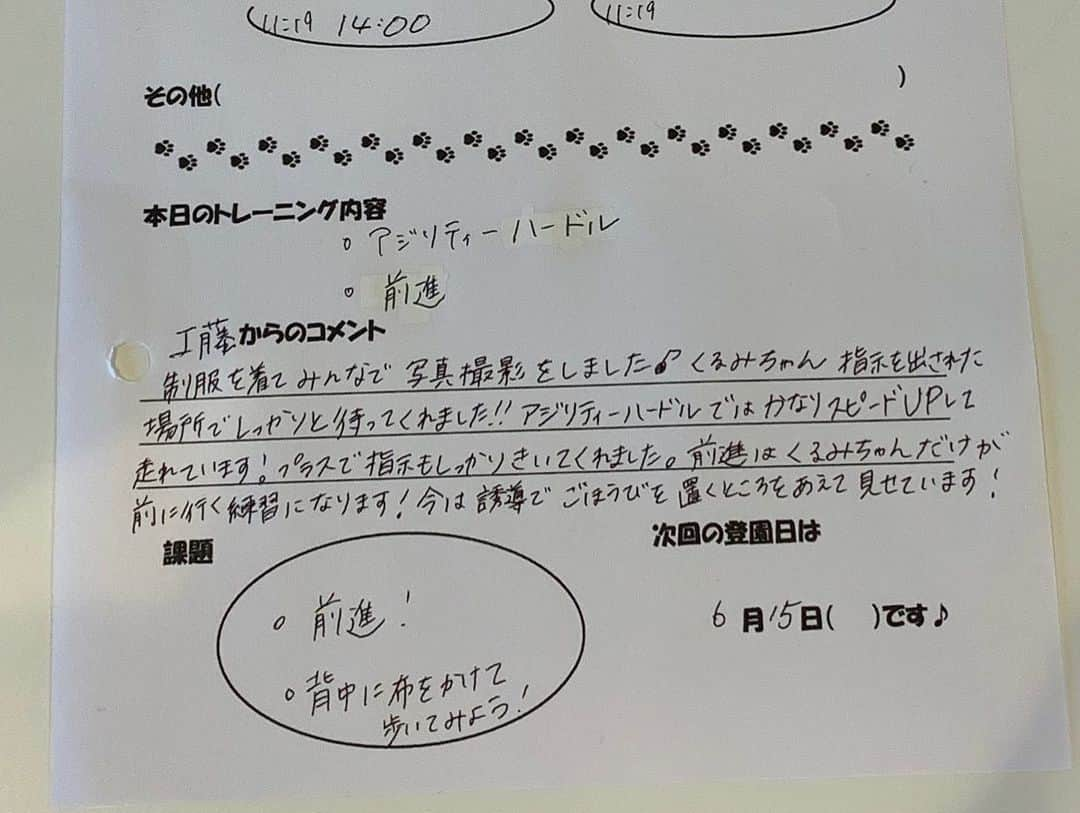 11:19 14:00
11:19
その他( )
本日のトレーニング内容
○ アジリティーハードル
○ 前進
工藤からのコメント
制服を着てみんなで写真撮影をしました♪くるみちゃん指示を出された
場所でしっかりと待ってくれました!!アジリティーハードルではかなりスピードUPして
走れています!プラスで指示もしっかりきいてくれました。前進はくるみちゃんだけが
前に行く練習になります!今は誘導でごほうびを置くところをあえて見せています!
課題
○ 前進!
○ 背中に布をかけて
歩いてみよう!
次回の登園日は
6月15日( )です♪